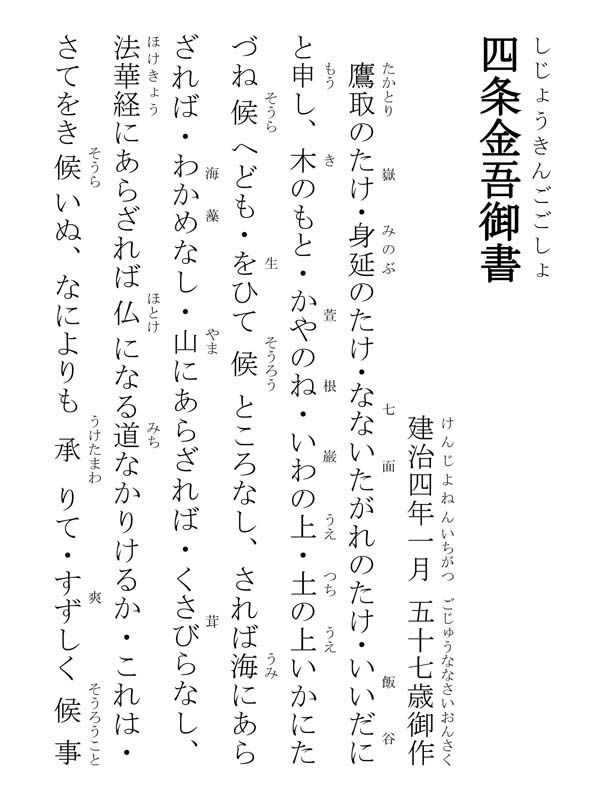 しじょうきんごごしょ
四条金吾御書
けんじよねんいちがつ ごじゅうななさいおんさく
建治四年一月 五十七歳御作
たかとり 嶽 みのぶ 七 面 飯 谷
鷹取のたけ・身延のたけ・なないたがれのたけ・いいだに
もう き 萱 根 巌 うえ つち うえ
と申し、木のもと・かやのね・いわの上・土の上いかにた
そうら 生 そうろう うみ
づね候へども・をひて候ところなし、されば海にあら
海 藻 やま 茸
ざれば・わかめなし・山にあらざれば・くさびらなし、
ほけきょう ほとけ みち
法華経にあらざれば仏になる道なかりけるか・これは・
そうら うけたまわ 爽 そうろうこと
さてをき候いぬ、なによりも承りて・すずしく候事